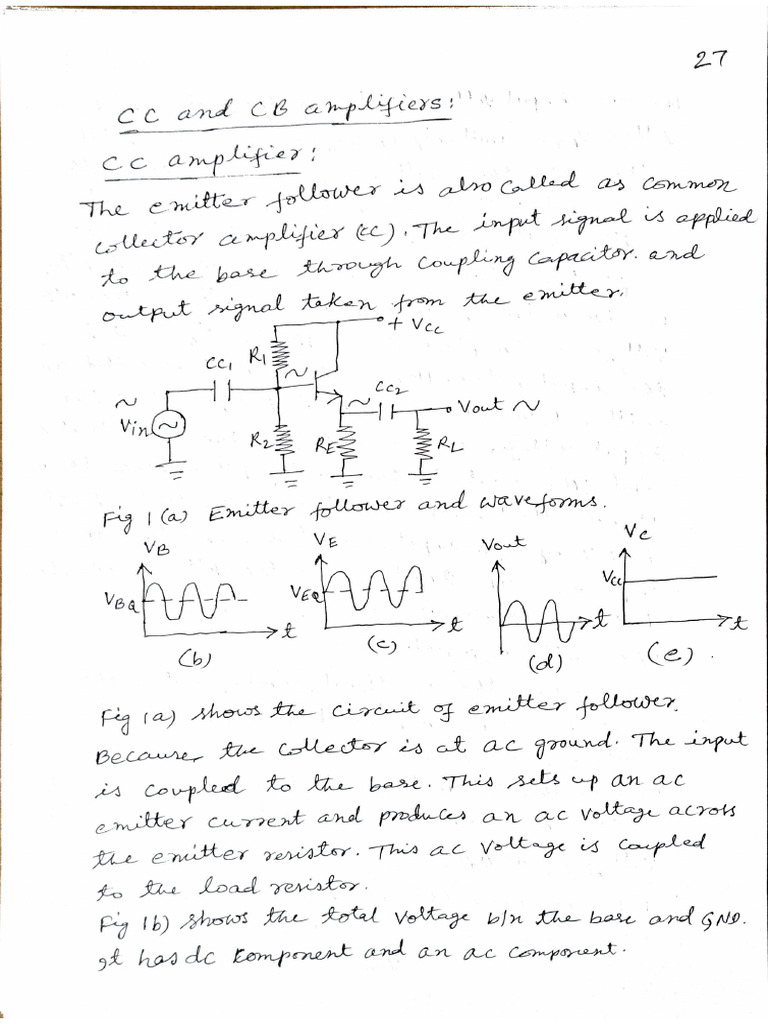 27
CC and CB amplifiers:
CC amplifier:
The emitter follower is also called as common
collector amplifier (CC). The input signal is applied
to the base through coupling capacitor. and
output signal taken from the emitter.
+ Vcc
R1
CC1
CC2
Vin
Vout
R2
RE
RL
Fig 1(a) Emitter follower and waveforms.
VB
VE
Vout
VC
VBQ
VEQ
Vcc
t
t
t
t
(b)
(c)
(d)
(e).
Fig 1a) shows the circuit of emitter follower.
Because, the collector is at ac ground. The input
is coupled to the base. This sets up an ac
emitter current and produces an ac voltage across
the emitter resistor. This ac voltage is coupled
to the load resistor.
Fig 1b) shows the total voltage b/n the base and GND.
It has dc komponent and an ac component.